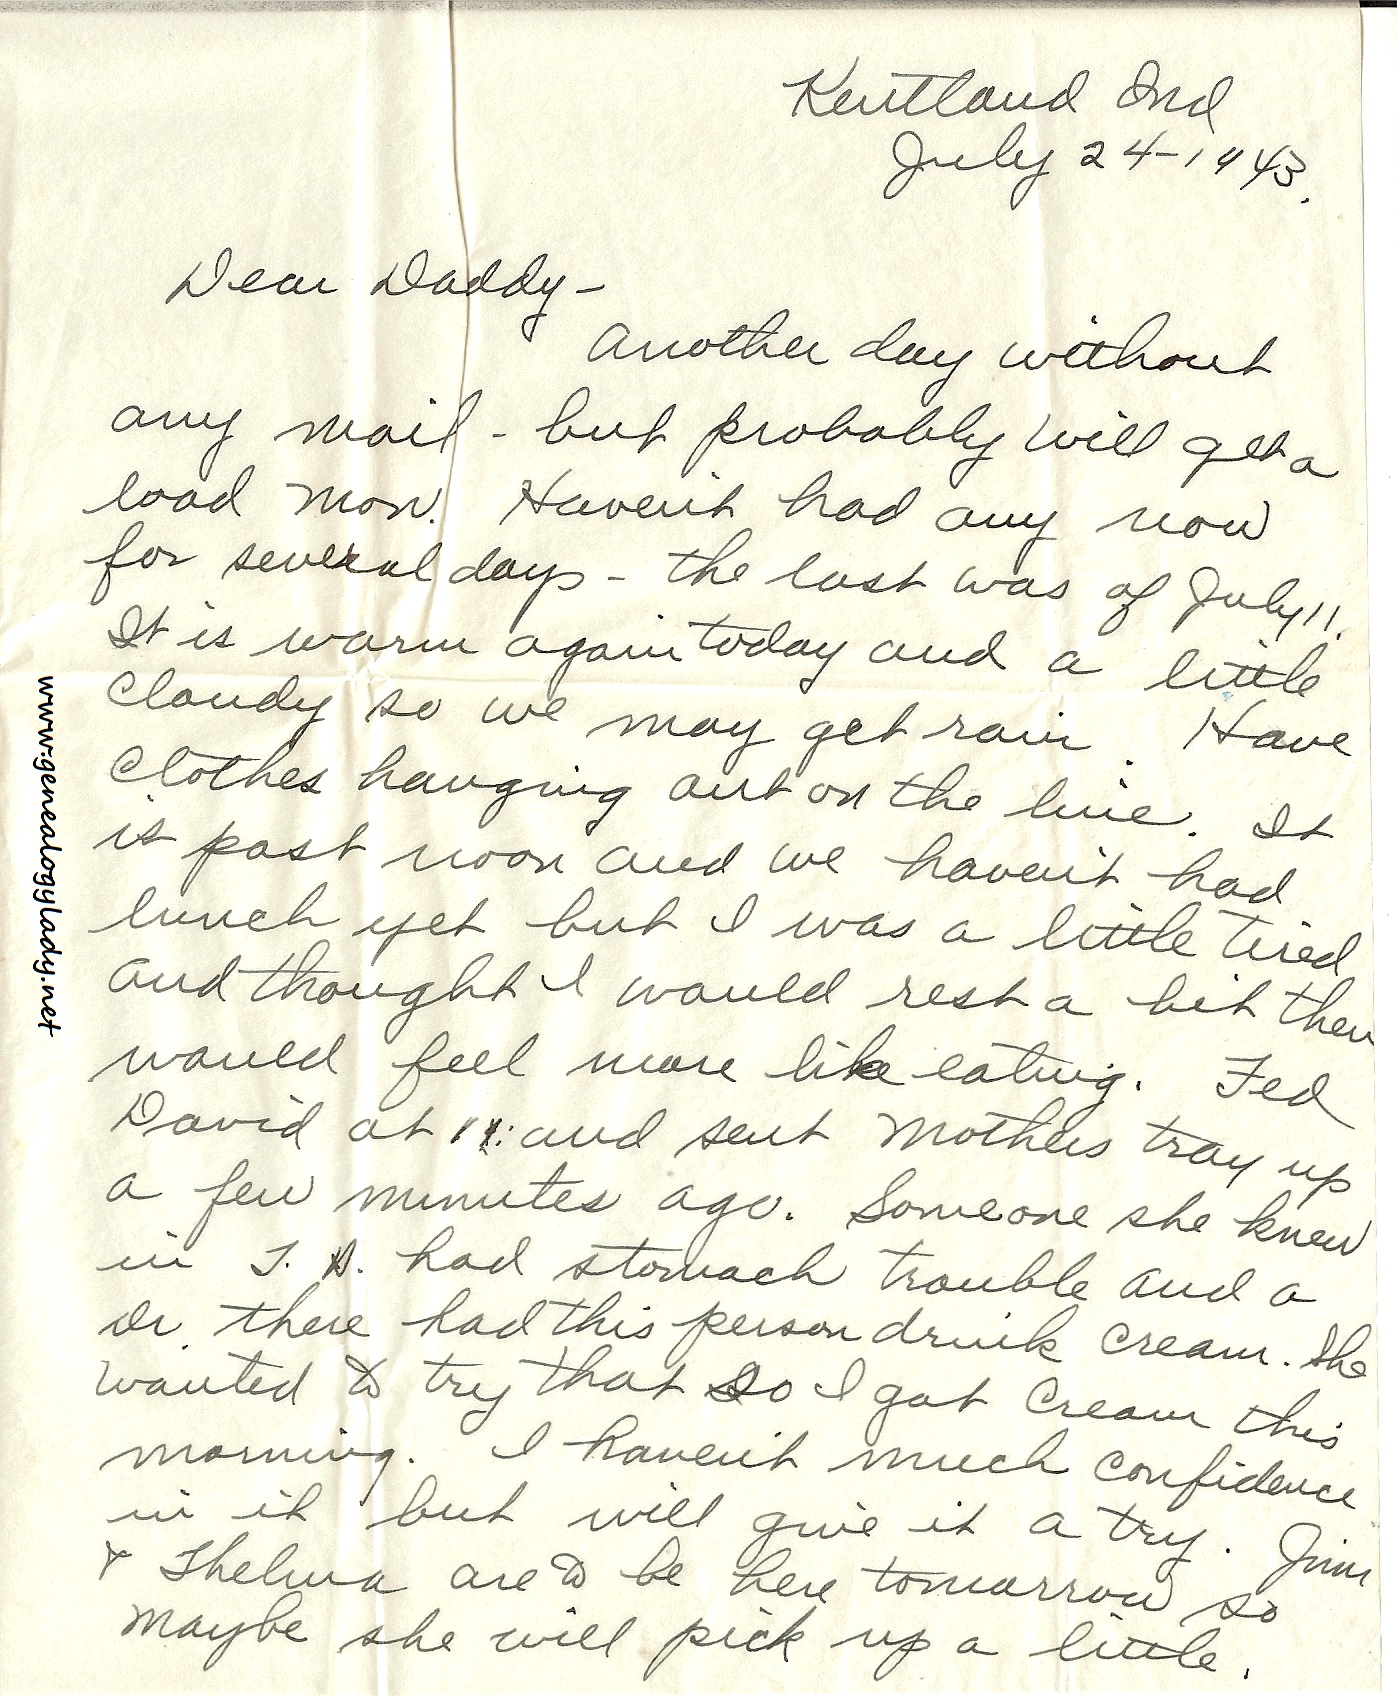 Kentland Ind
July 24-1943.
Dear Daddy-
Another day without
any mail - but probably will get a
load Mon. Haven't had any now
for several days - the last was of July 11.
It is warm again today and a little
cloudy so we may get rain. Have
clothes hanging out on the line. It
is past noon and we haven't had
lunch yet but I was a little tired
and thought I would rest a bit then
would feel more like eating. Fed
David at 11: and sent Mothers tray up
a few minutes ago. Someone she knew
in S.D. had stomach trouble and a
Dr. there had this person drink cream. She
wanted to try that so I got cream this
morning. I haven't much confidence
in it but will give it a try. Jim
& Thelma are to be here tomorrow so
maybe she will pick up a little.
www.genealogylady.net